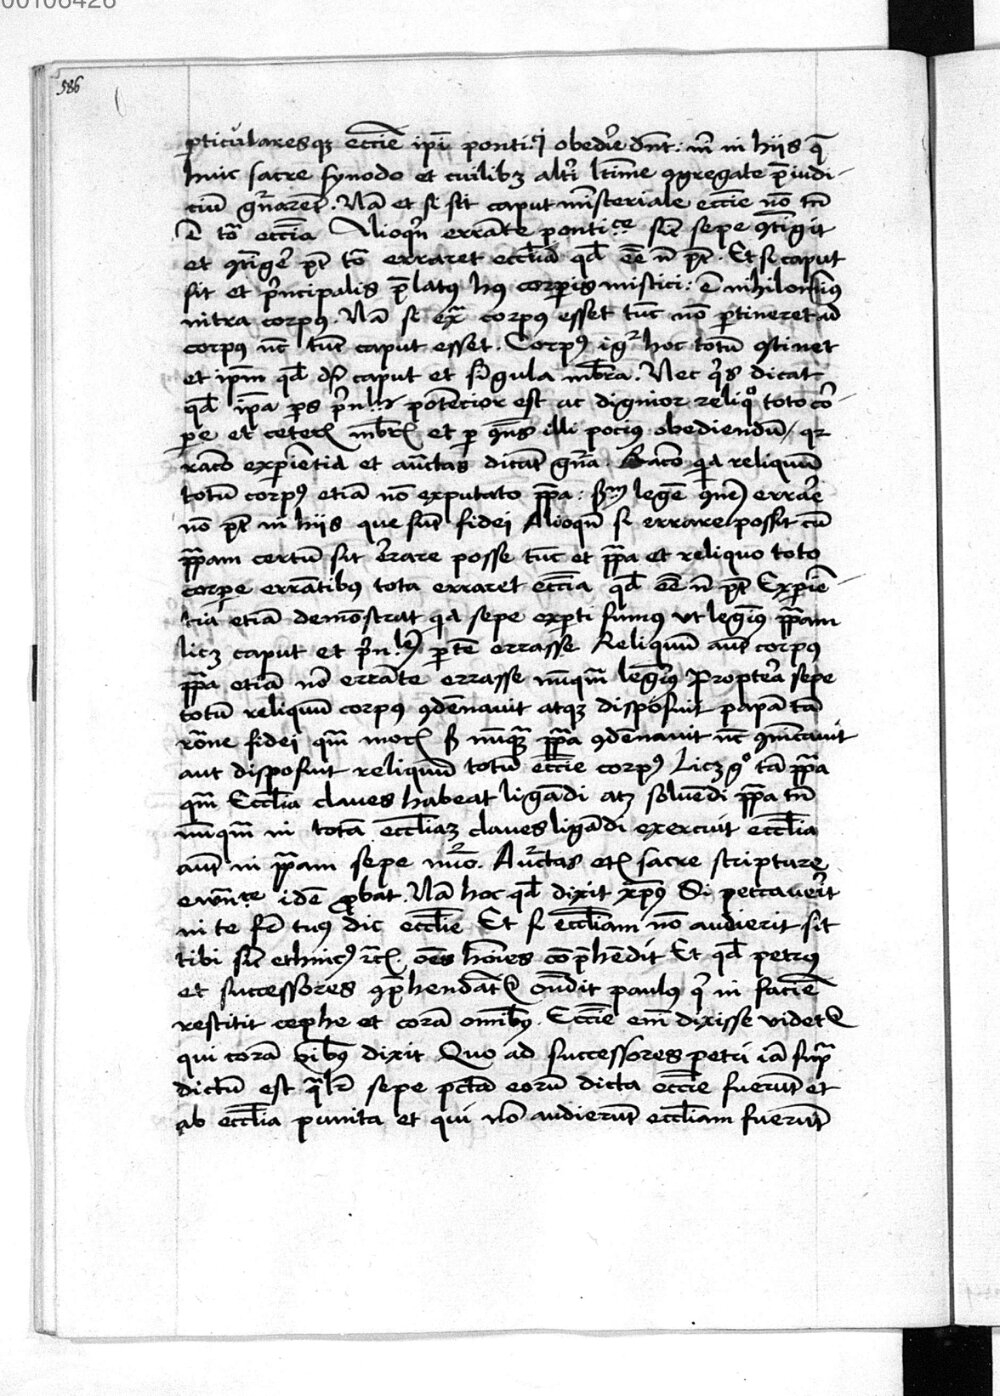 00106426
586
p̱ticularesqꝫ eccīe ip̄i pontiᶜⁱ obedīe dn̄t: nī in hijs q̄
huic sacre synodo et cuilibꝫ alt̄i ltīme ꝯgregate p̄iudi-
ciū gn̄arēt. Nā et si sit caput mīsteriale eccīe nō tn̄
ē tō eccīa Alioqn̄ errāte pontiᶜᵉ sic̄ sepe ꝯtīgit
et ꝯtīgē p̄t tō erraret ecclīa qd̄ eē n̄ p̄t. Et si caput
sit et p̄ncipalis p̄latꝰ hꝰ corp̱is mistici: ē nihilomīꝰ
intra corpꝰ. Nā si ext̄ corpꝰ esset tūc nō p̱tineret ad
corpꝰ nc̄ tūc caput esset. Corpꝰ igᷣ hoc totū ꝯtinet
et ip̄m qd̄ dr̄ caput et sīgula mēbra. Nec qⁱs dicat
qd̄ ip̄a ps p̄nˡⁱᵒʳ potencior est ac dignior reliqᵒ toto cor-
p̱e et ceteris mēbris et p̱ ꝯn̄s illi pocius obediendū / qꝛ
racō exp̱ientia et auctas dicāt gn̄a. Racō qꝛ reliquū
totū corpꝰ etiā nō exputato pp̄a: sᵐ legē ꝯnē errāe
nō p̄t in hijs que sūt fidei Alioqn̄ si errare possit cū
pp̄am certū sit errare posse tūc et pp̄a et reliquo toto
corpe errātibus tota erraret eccīa qd̄ eē n̄ p̄t Exp̱iē-
tia etiā demōstrat qꝛ sepe exp̱ti sumus vt legimꝰ pp̄am
licꝫ caput et p̄nˡᵉᵐ p̱tē errasse Reliquū aūt corpus
pp̄a etiā nō errāte errasse nūqm̄ legimꝰ Propterea sepe
totū reliquū corpus ꝯdēnauit atqꝫ disposuit papā tā
rōne fidei qm̄ morū s̄ nūqm̄ pp̄a ꝯdēnauit nc̄ ꝯnicauit
aut disposuit reliquū totū eccīe corpꝰ Licꝫ gᵒ tā pp̄a
qm̄ Ecclīa claues habeat ligādi atqꝫ soluēdi pp̄a tn̄
nūqm̄ in totā ecclīaꝫ claues ligādi exercuit ecclīa
aūt in pp̄am sepe nīo. Auctas etiā sacre scripture
ewāᶜᵉ idē ꝓbat. Nā hoc qd̄ dixit xp̄ꝰ Si peccauerit
in te fr̄ tuꝰ dic ecclīe Et si ecclīam nō audierit sit
tibi sic̄ ethnicꝰ etc̄. oēs hoīes cōp̄hēdit Et qd̄ petrus
et successores ꝯp̄hendātᷣ on̄dit paulus qⁱ in faciē
restitit cephe et corā omībꝰ. Eccīe em̄ dixisse videtᷣ
qui corā oībꝰ dixit Quo ad successores petri iā supᵃ
dictū est qᵃlr̄ sepe pctā eorū dicta eccīe fuerūt et
ab ecclīa punita et qui nō audierūt ecclīam fuerūt